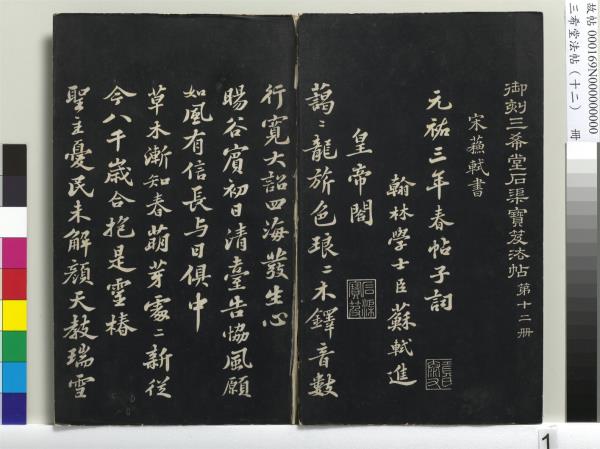 御刻三希堂石渠寶笈法帖 第十二册
宋蘇軾書
元祐三年春帖子詞
翰林學士臣蘇軾進
皇帝閤
藹〻龍旂色琅〻木鐸音數
行寬大詔四海發生心
暘谷賓初日清臺告協風願
如風有信長与日俱中
草木漸知春萌芽處〻新從
今八千歲合抱是靈椿
聖主憂民未解顏天教瑞雪
石渠寶笈
故帖 000169N000000000
三希堂法帖(十二) 冊
1